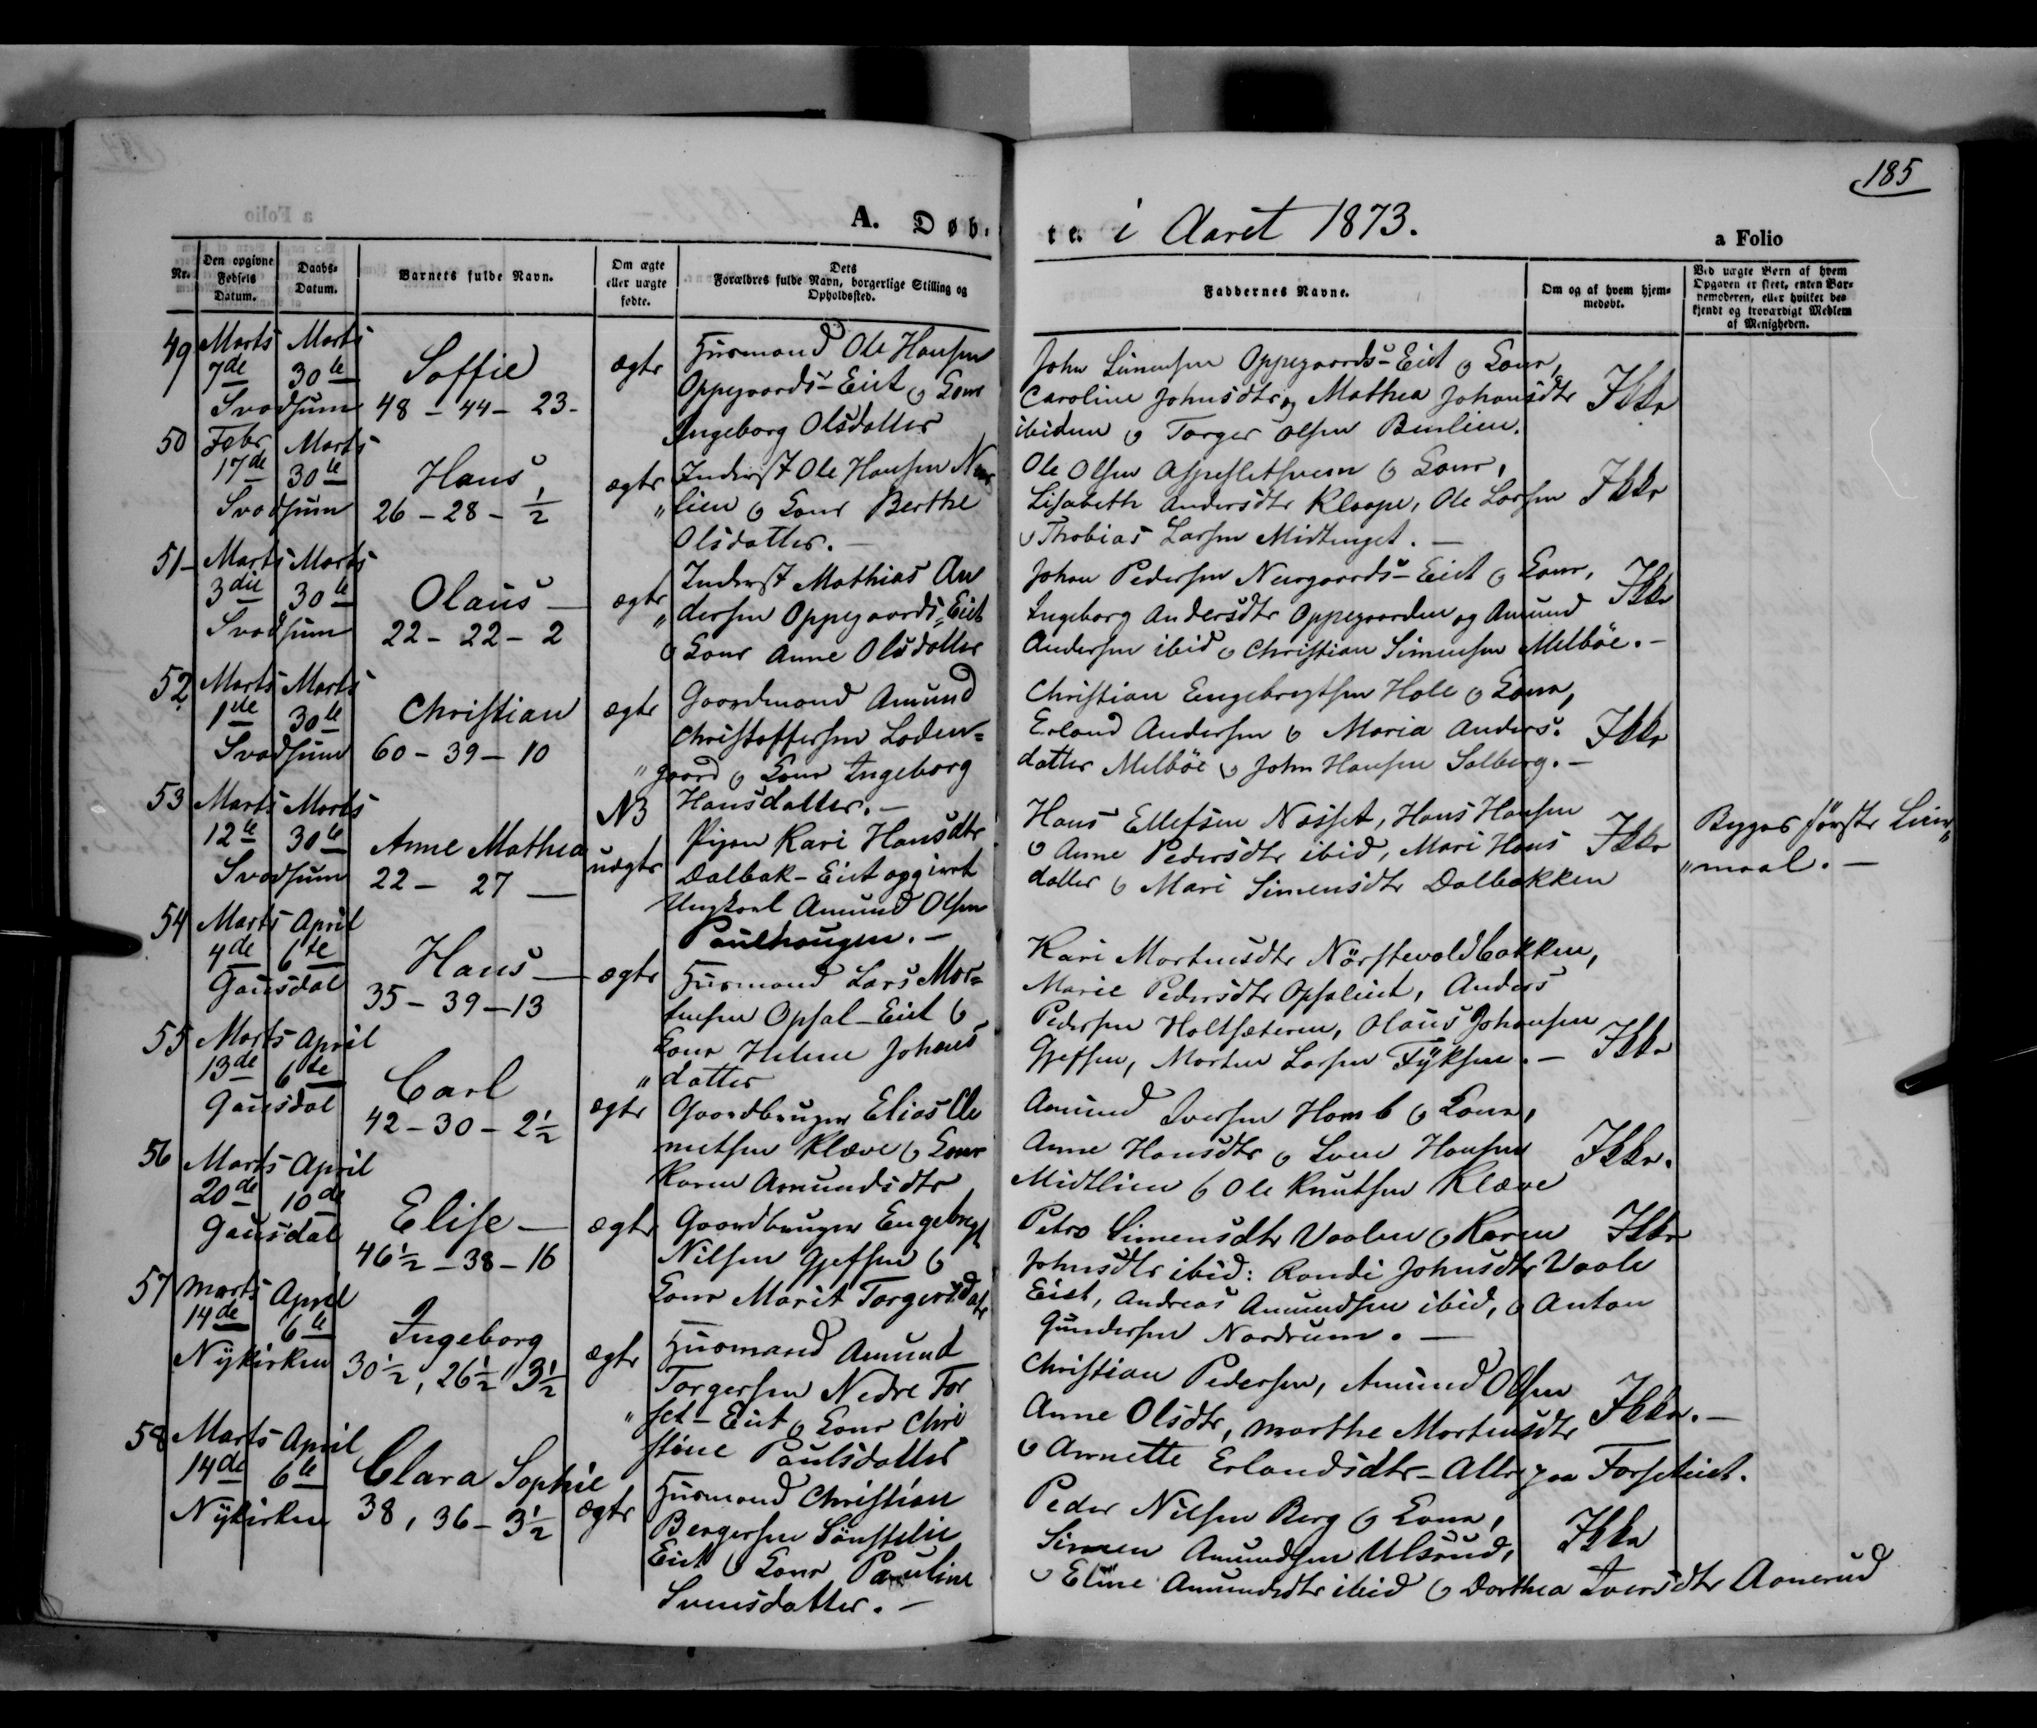 185
A. Døb-
te. i Aaret 1873.
a Folio
Nr.
Den opgivne Fødsels Datum.
Daabs-Datum.
Barnets fulde Navn.
Om ægte eller uægte fødte.
Dets Forældres fulde Navn, borgerlige Stilling og Opholdssted.
Faddernes Navne.
Om og af hvem hjemmedøbt.
Ved uægte Børn af hvem Opgaven er skeet, enten Barnemoderen, eller hvilket bekjendt og troværdigt Medlem af Menigheden.
49
Marts 7de
Marts 30te
Svadsum
Soffie
48 - 44 - 23.
ægte
Husmand Ole Hansen
Oppegaards-Eiet og Kone
Ingeborg Olsdatter
John Simensen Oppegaards-Eiet og Kone,
Caroline Johnsdtr og Mathea Johansdtr
ibidem og Torger Olsen
Ikke
50
Febr 17de
Marts 30te
Svadsum
Hans
26 - 28 - 1/2
ægte
Inderst Ole Hansen
lien og Kone Berthe
Olsdatter. -
Ole Olsen og Kone,
Lisabeth Andersdtr Klaape, Ole Larsen
og Thobias Larsen Midtenget. -
Ikke
51 -
Marts 3die
Marts 30te
Svadsum
Olaus -
22 - 22 - 2
ægte
Inderst Mathias An
dersen Oppegaards-Eiet
og Kone Anne Olsdatter
Johan Pedersen Neergaards-Eiet og Kone,
Ingeborg Andersdtr Oppegaarden og Amund
Andersen ibid og Christian Simensen Melböe. -
Ikke
52
Marts 1ste
Marts 30te
Svadsum
Christian
60 - 39 - 10
ægte
Gaardmand Amund
Christoffersen Loden=
"gaard og Kone Ingeborg
Hansdatter. -
Christian Engebregtsen Hole og Kone,
Erland Andersen og Maria Anders=
datter Melböe og John Hansen Solberg. -
Ikke
53
Marts 12te
Marts 30te
Svadsum
Anne Mathea
22 - 27 -
N3
uægte
Pigen Kari Hansdtr
Dalbak-Eiet opgivet
Ungkarl Amund Olsen
Paulhaugen. -
Hans Ellefsen Næsset, Hans Hansen
og Anne Pedersdtr ibid, Mari Hans
datter og Mari Simensdtr Dalbakken
Ikke
Begges første Leier
"maal. -
54
Marts 4de
April 6te
Gausdal
Hans -
35 - 39 - 13
ægte
Husmand Lars Mor=
tensen Opsal-Eiet og
Kone Helene Johans
"datter
Kari Mortensdtr Nörstevoldbakken,
Marie Pedersdtr Opsaleiet, Anders
Pedersen Holtsæteren, Olaus Johansen
Gjefsen, Morten Larsen Fyksen. -
Ikke
55
Marts 13de
April 6te
Gausdal
Carl
42 - 30 - 2 1/2
ægte
Gaardbruger Elias Cle
metsen Klæve og Kone
Karen Amundsdtr
Amund Iversen Homb og Kone,
Anne Hansdtr og Sven Hansen
Midtlien og Ole Knutsen Klæve
Ikke.
56
Marts 20de
April 10de
Gausdal
Elise -
46 1/2 - 38 - 16
ægte
Gaardbruger Engebregt
Nilsen Gjefsen og
Kone Marit Torgersdatr
Petra Simensdtr Vaalen og Karen
Johnsdtr ibid: Randi Johnsdtr Vaale
Eiet, Andreas Amundsen ibid, og Anton
Gundersen Nordrum. -
Ikke
57
Marts 14de
April 6te
Nykirken
Ingeborg
30 1/2, 26 1/2 3 1/2
ægte
Husmand Amund
Torgersen Nedre For
"set-Eiet og Kone Chri
stine Paulsdatter
Christian Pedersen, Amund Olsen
Anne Olsdtr, Marthe Mortensdtr
og Annette Erlandsdtr - Alle paa Forseteiet.
Ikke. -
58
Marts 14de
April 6te
Nykirken
Clara Sophie
38, 36 - 3 1/2
ægte
Husmand Christian
Bergersen Sönstelie
Eiet og Kone Pauline
Svensdatter. -
Peder Nilsen Berg og Kone,
Simen Amundsen Ulsrud,
og Eline Amundsdtr ibid og Dorthea Iversdtr Aanerud
Ikke